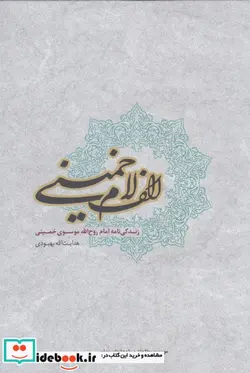 الف لام خمینی
زندگی‌نامه امام روح‌الله موسوی خمینی
هدایت‌الله بهبودی
مشاهده و خرید این کتاب در:
iiketab.com